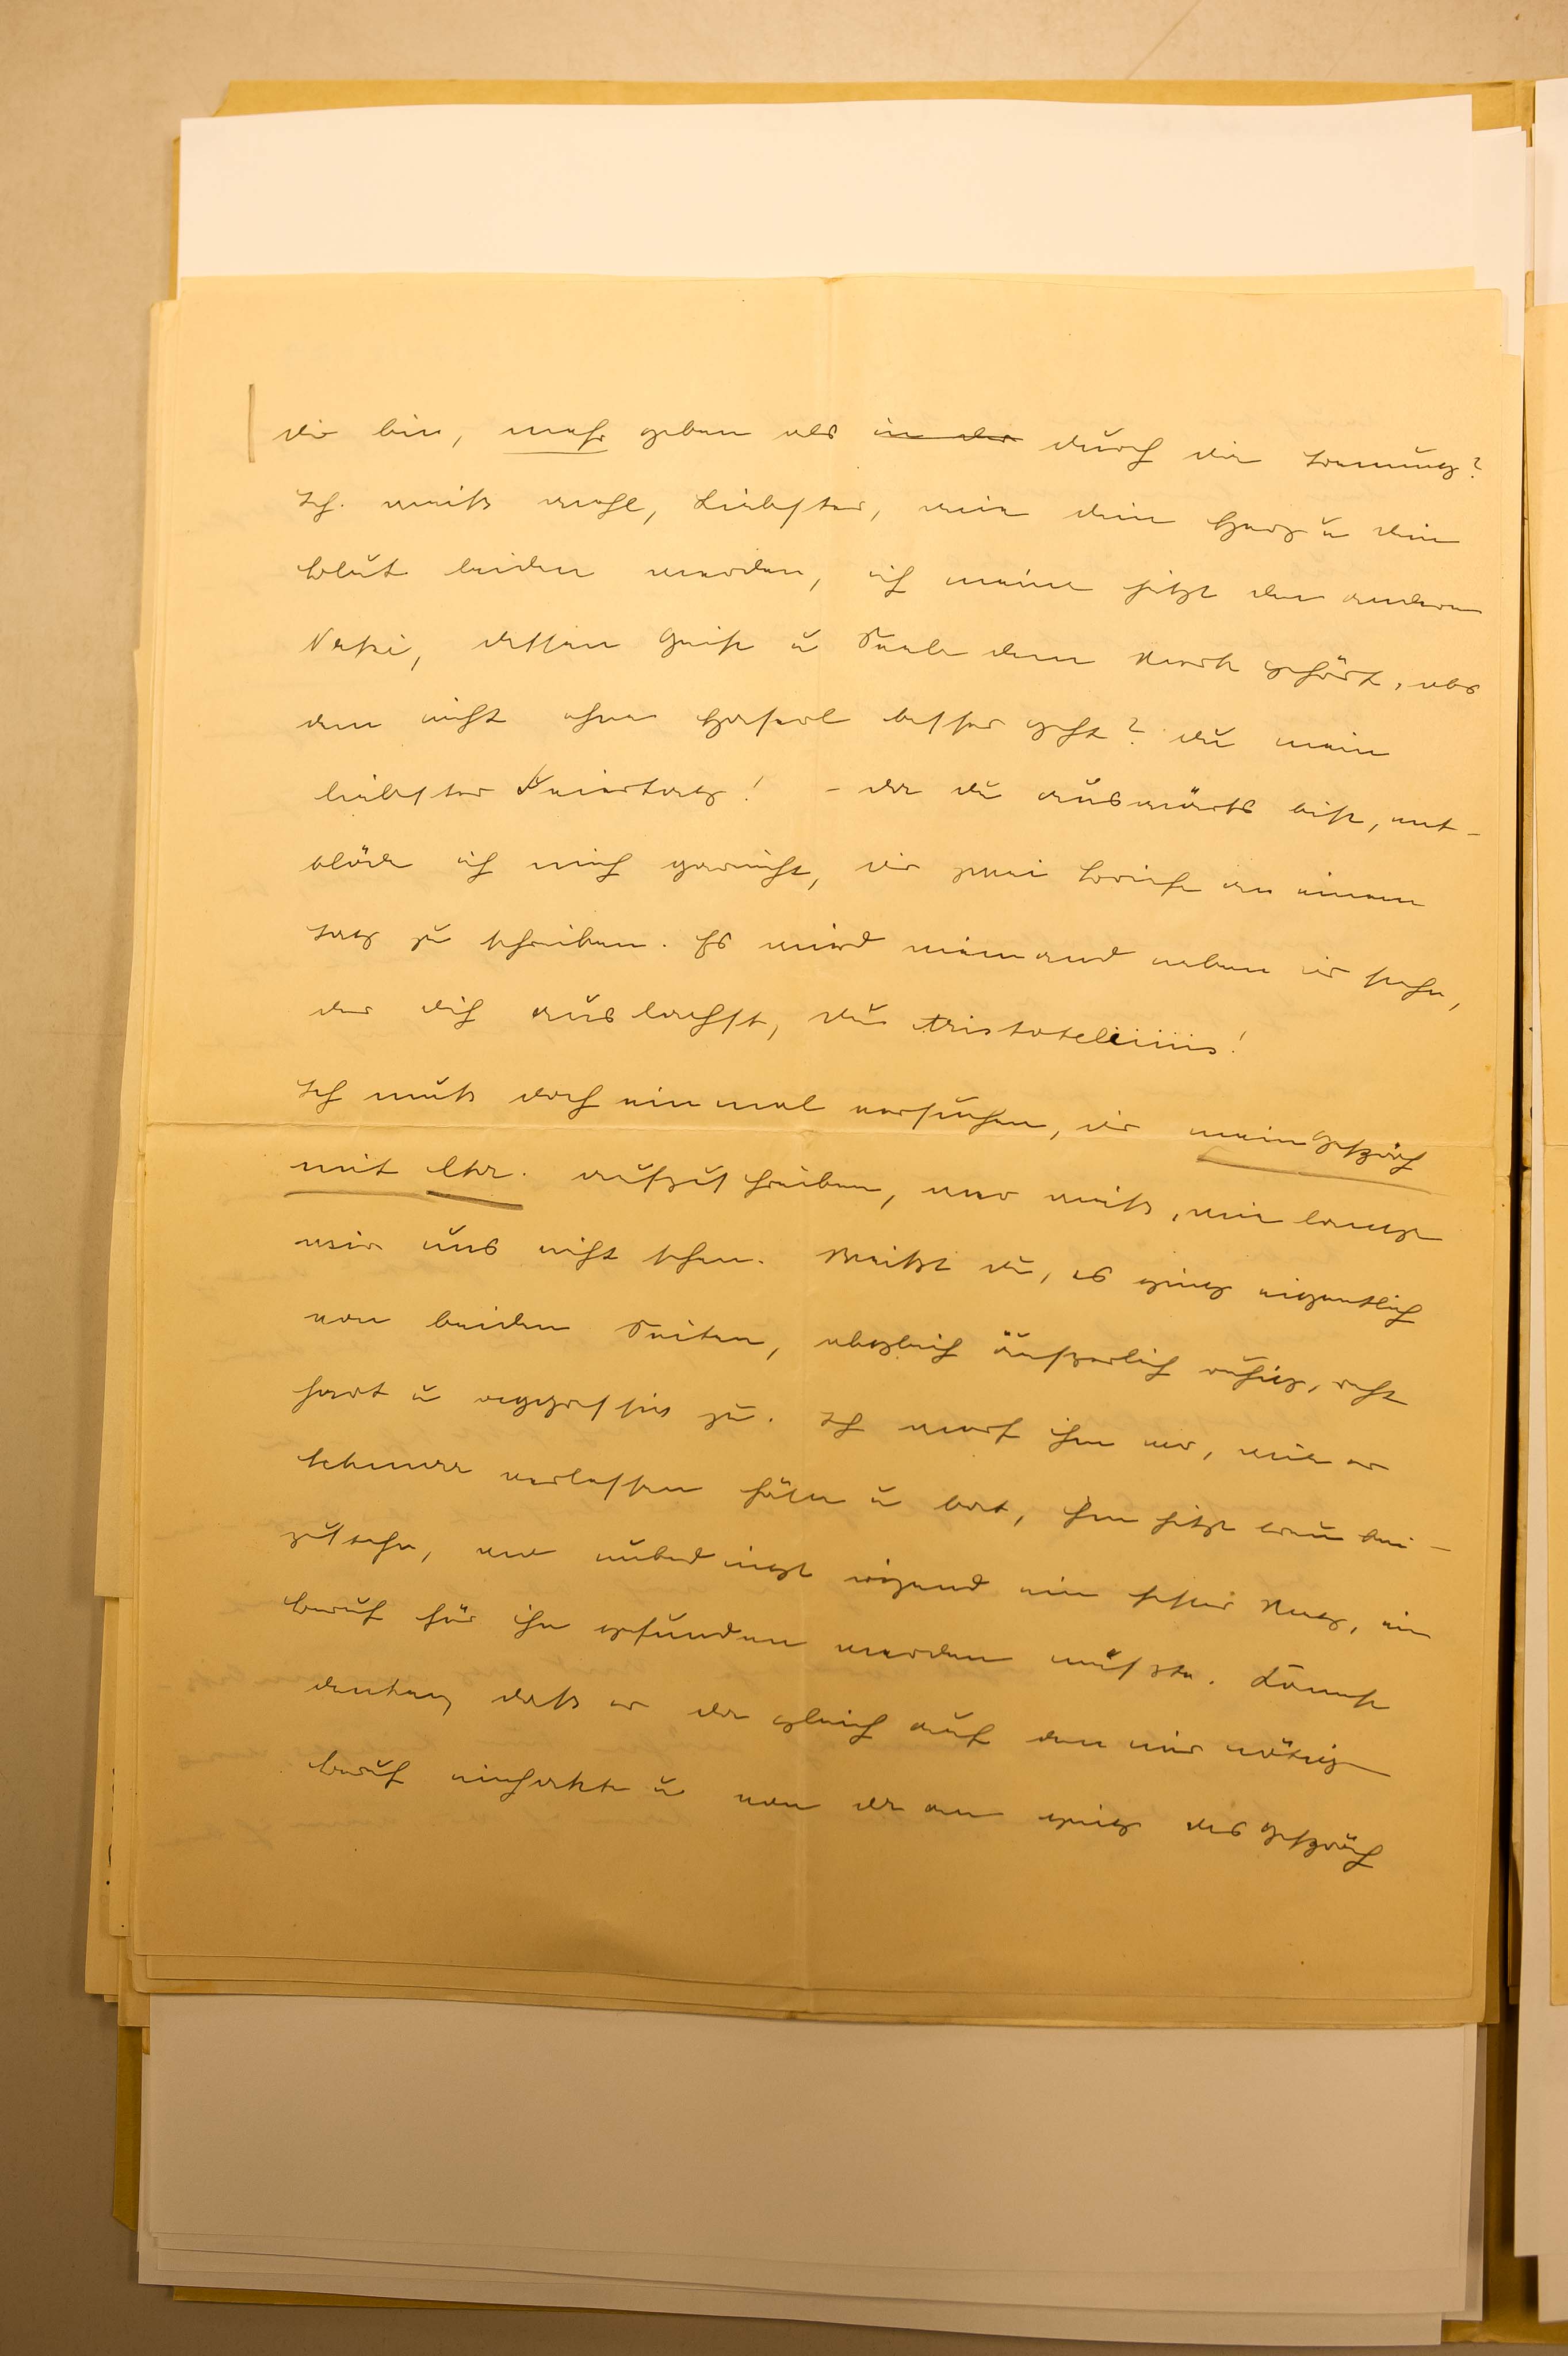 dir bin, mehr geben als in der durch die Trennung?
Ich weiß wohl, Liebster, wie dein Herz u dein
Blut leiden werden, ich meine jetzt den anderen
dessen Geist u Seele dem Werk gehört, obs
dem nicht ohne besser geht? Du mein
liebster Feiertag! – Da du auswärts bist, ent-
blöde ich mich garnicht, dir zwei Briefe an einem
Tag zu schreiben. Es wird niemand neben dir stehn,
der dich auslacht, du Aristoteliiiis!
Ich muß doch einmal versuchen, dir mein Gespräch
mit Ehr. aufzuschreiben, wer weiß, wie lange
wir uns nicht sehen. Weißt du, es ging eigentlich
von beiden Seiten, obgleich äußerlich ruhig, recht
hart u aggressiv zu. Ich warf ihm vor, wie er
verlassen hätte u bat, ihm jetzt treu bei-
zustehn, wo unbedingt irgend ein fester Weg, ein
Beruf für ihn gefunden werden müßte. Kannst
denken, daß er da gleich auf den mir nötigen
Beruf einhakte u von da an ging das Gespräch